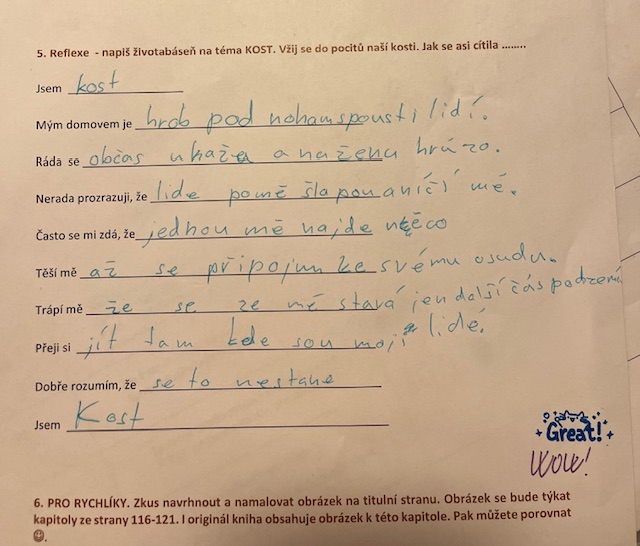 5. Reflexe - napiš životabáseň na téma KOST. Vžij se do pocitů naší kosti. Jak se asi cítila ........
Jsem kost
Mým domovem je hrob pod nohamspousti lidí.
Ráda se občas ukaža a naženu hrůzo.
Nerada prozrazuji, že lide pomě šlapou a ničí mé.
Často se mi zdá, že jednou mě najde něco
Těší mě až se připojim ke svému osudu.
Trápí mě že se ze mé stavá jen další čás podzemí
Přeji si jít tam kde sou moji lidé.
Dobře rozumím, že se to nestane
Jsem Kost
Great!
WOW!
6. PRO RYCHLÍKY. Zkus navrhnout a namalovat obrázek na titulní stranu. Obrázek se bude týkat
kapitoly ze strany 116-121. I originál kniha obsahuje obrázek k této kapitole. Pak můžete porovnat
☺.